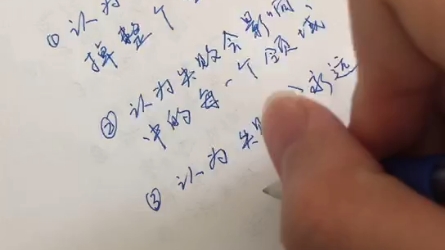 ① 认为
掉整个
② 认为失败会影响
的每一个领域
③ 认为失 永远